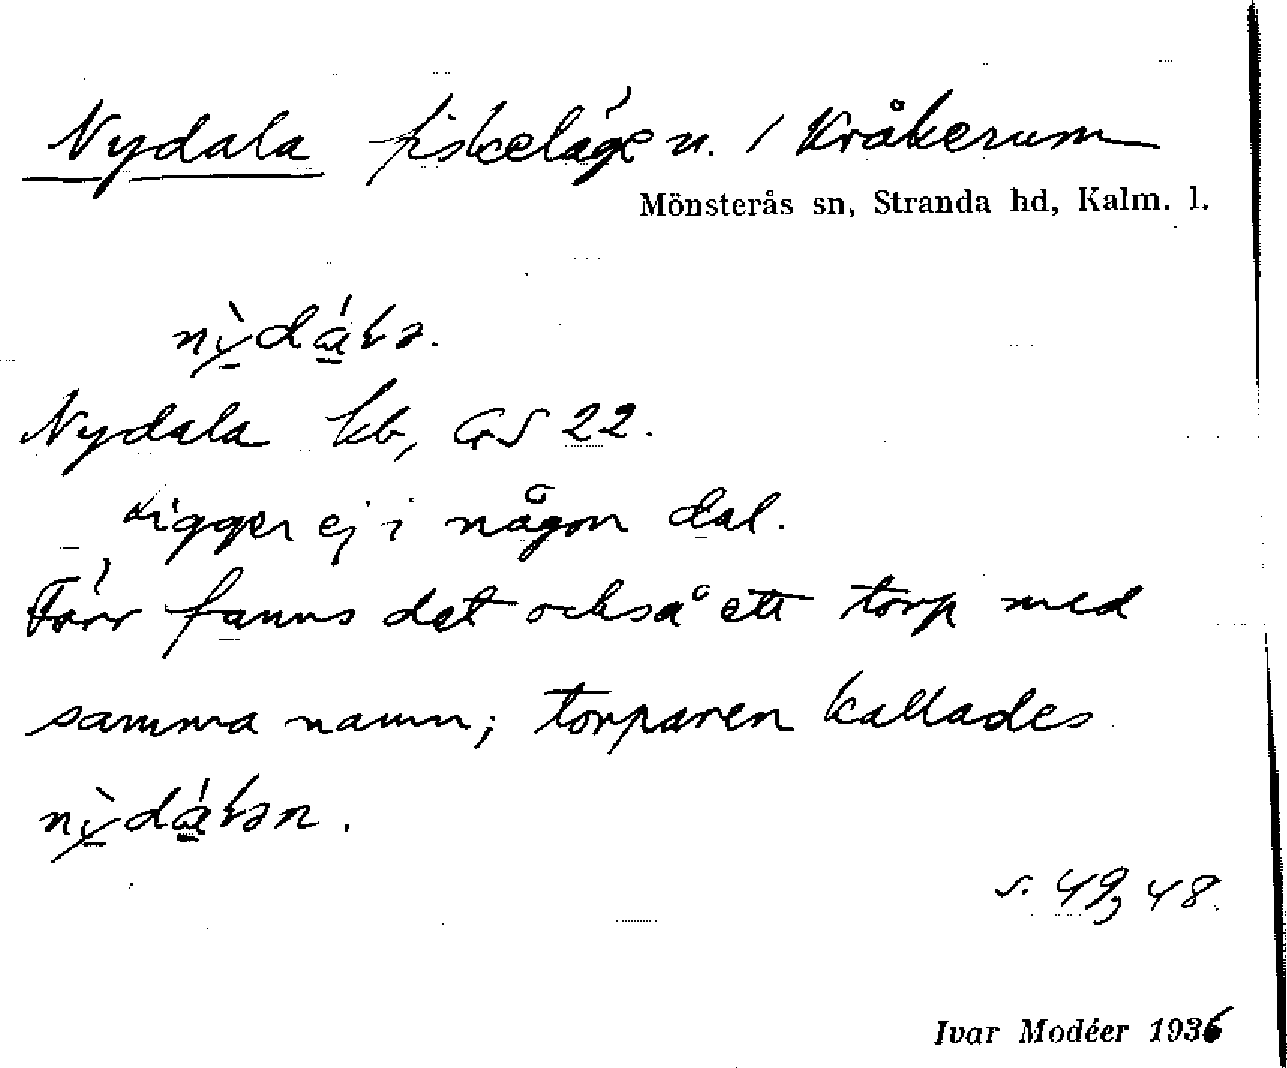 Nydala fiskeläge u. / Kråkerum
Mönsterås sn, Stranda hd, Kalm. l.
Nydala kb, GS 22.
Ligger ej i någon dal.
Förr fanns det också ett torp med
samma namn; torparen kallades
s. 49, 48.
Ivar Modéer 1936